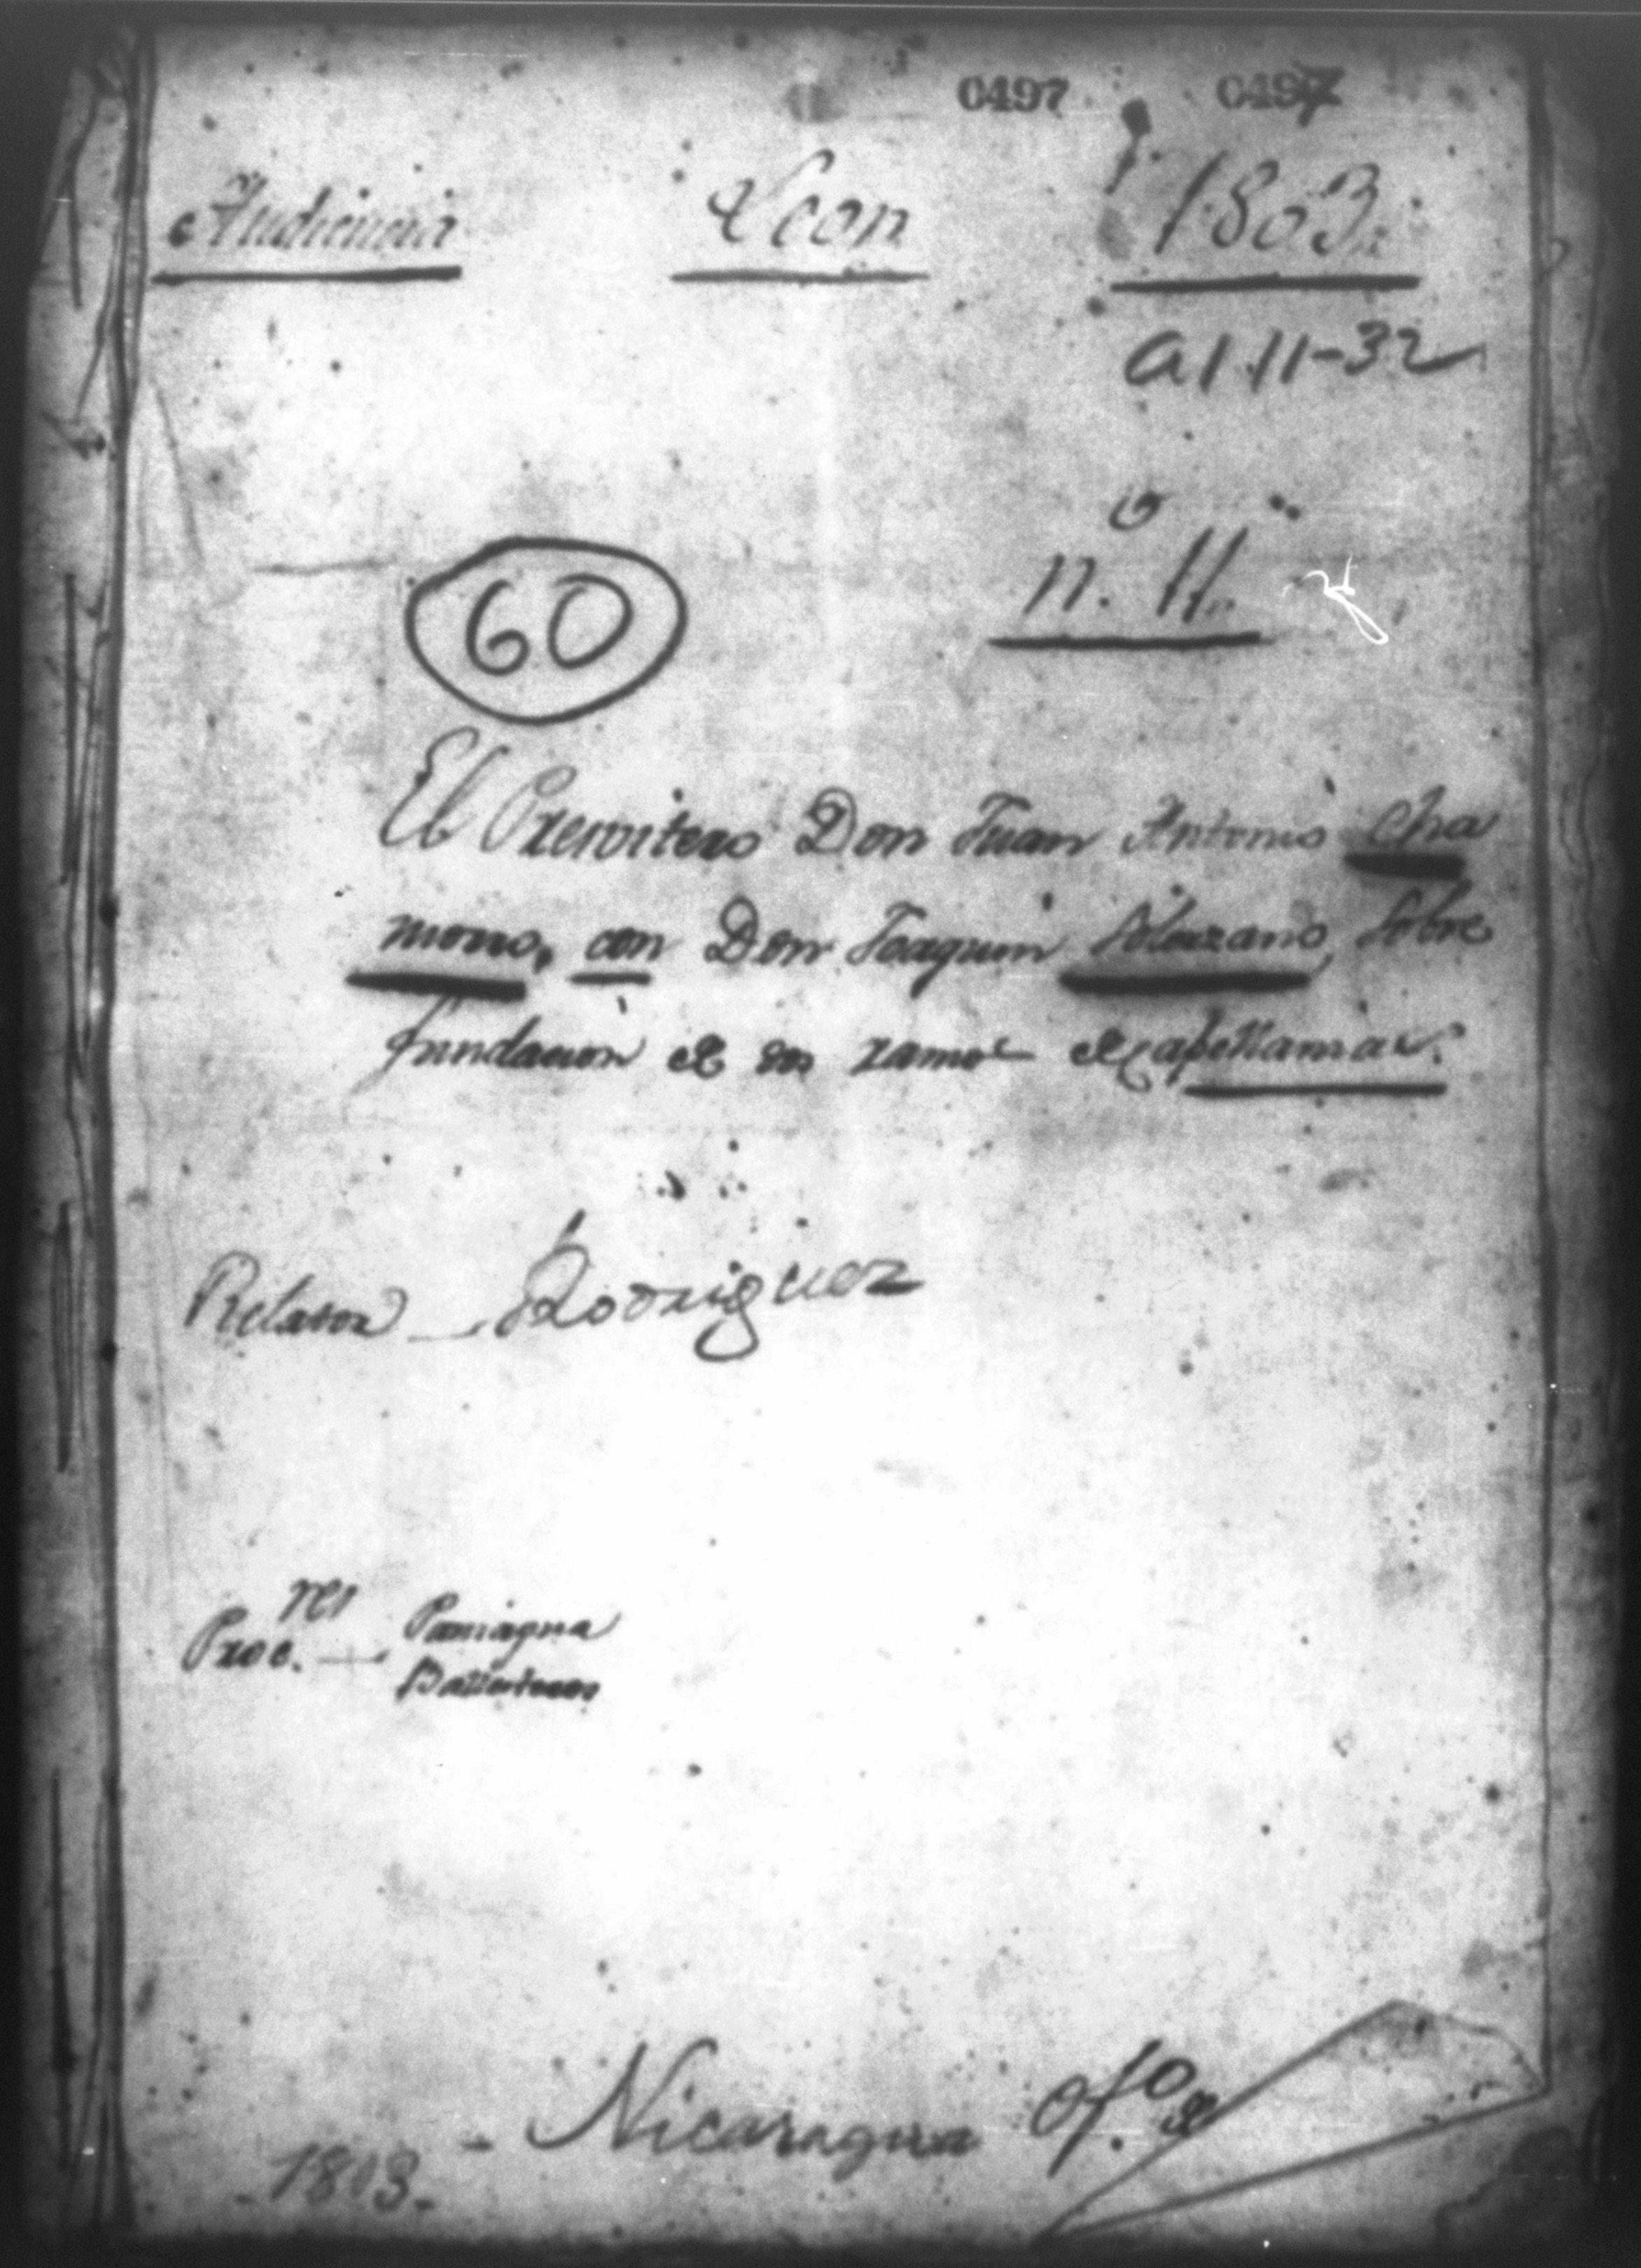 0497 0497
Audiencia Leon 1803.
A1.11-32
n.º 11.
60
El Presvitero Don Juan Antonio Cha
morro, con Don Joaquin Solorzano, sobre
fundacion de dos ramos de capellanias.
Relator — Rodriguez
Proc.res — Paniagua
Nicaragua of.º
1803.